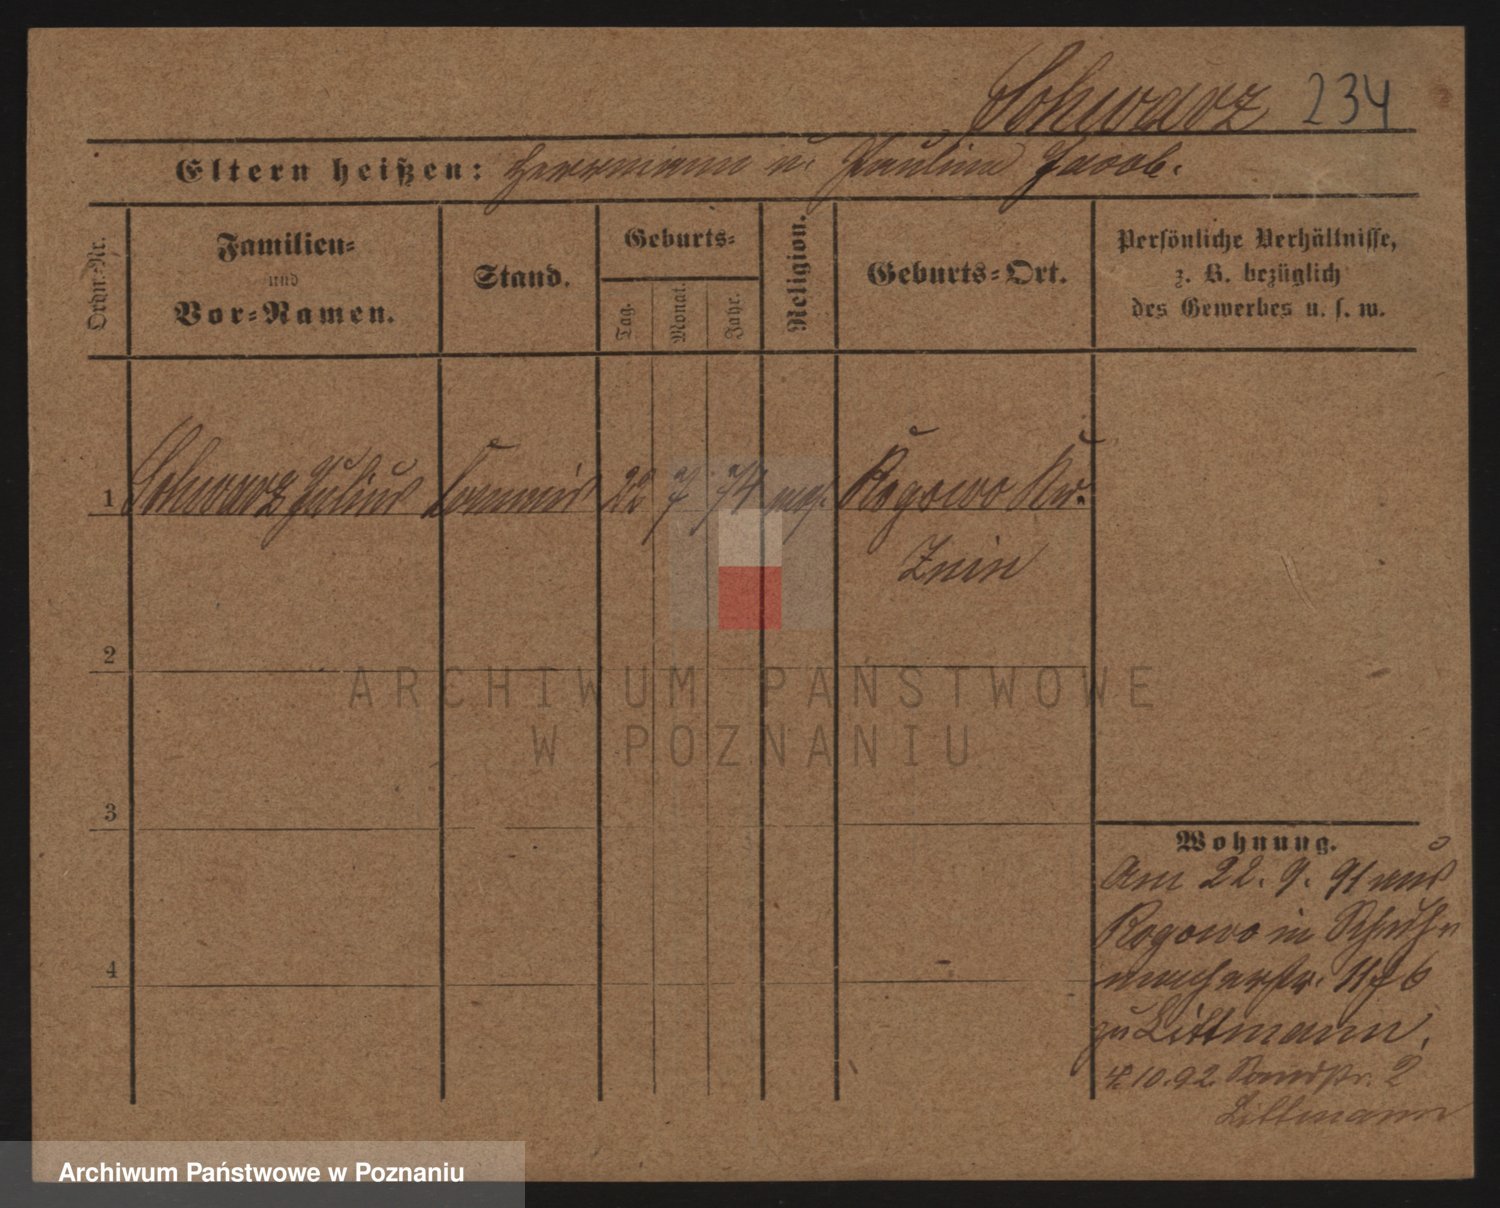 Schwarz 234
Eltern heißen: Herrmann u. Paulina Jacob.
Ordn-Nr.
Familien-
und
Vor-Namen.
Stand.
Geburts-
Tag.
Monat.
Jahr.
Religion.
Geburts-Ort.
Persönliche Verhältnisse,
z. B. bezüglich
des Gewerbes u. s. w.
1 Schwarz Julius Commis 22 7 74 mos. Rogowo Kr.
Znin
2
ARCHIWUM PAŃSTWOWE
W POZNANIU
3
4
Wohnung.
Am 22. 9. 91 aus
Rogowo in Schuh
macherstr. 11
zu Littmann.
4.10.92. 2
Littmann
Archiwum Państwowe w Poznaniu